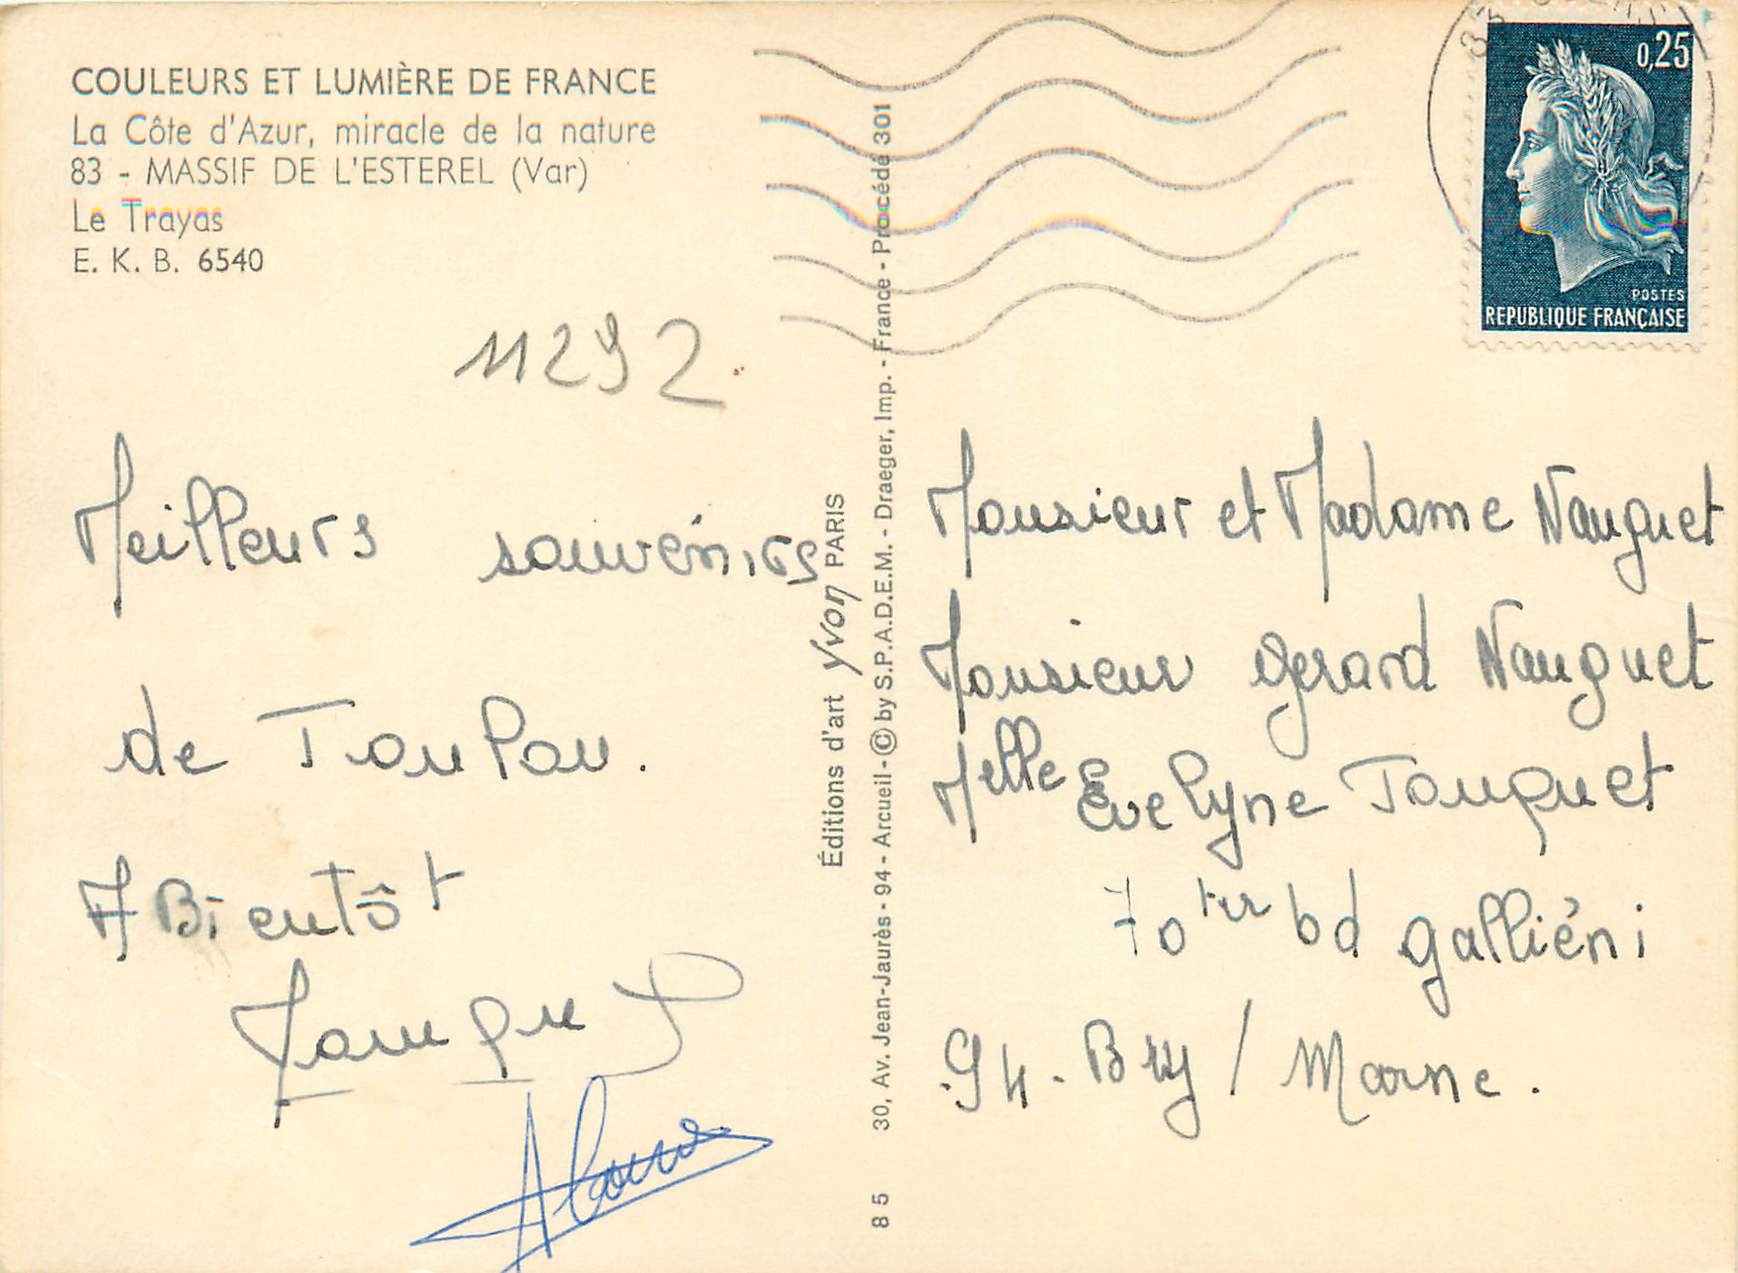 COULEURS ET LUMIÈRE DE FRANCE
La Côte d'Azur, miracle de la nature
83 - MASSIF DE L'ESTEREL (Var)
Le Trayas
E. K. B. 6540
11292
Meilleurs souvénirs
de Toulon.
A Bientôt
Éditions d'art Yvon PARIS
30, Av. Jean-Jaurès - 94 - Arcueil - © by S.P.A.D.E.M. - Draeger, Imp. - France - Procédé 301
8 5
0,25
POSTES
REPUBLIQUE FRANÇAISE
Monsieur et Madame Nauguet
Monsieur Gerard Nauguet
Melle Evelyne Touquet
70 ter bd galliéni
94. Bry / Marne.